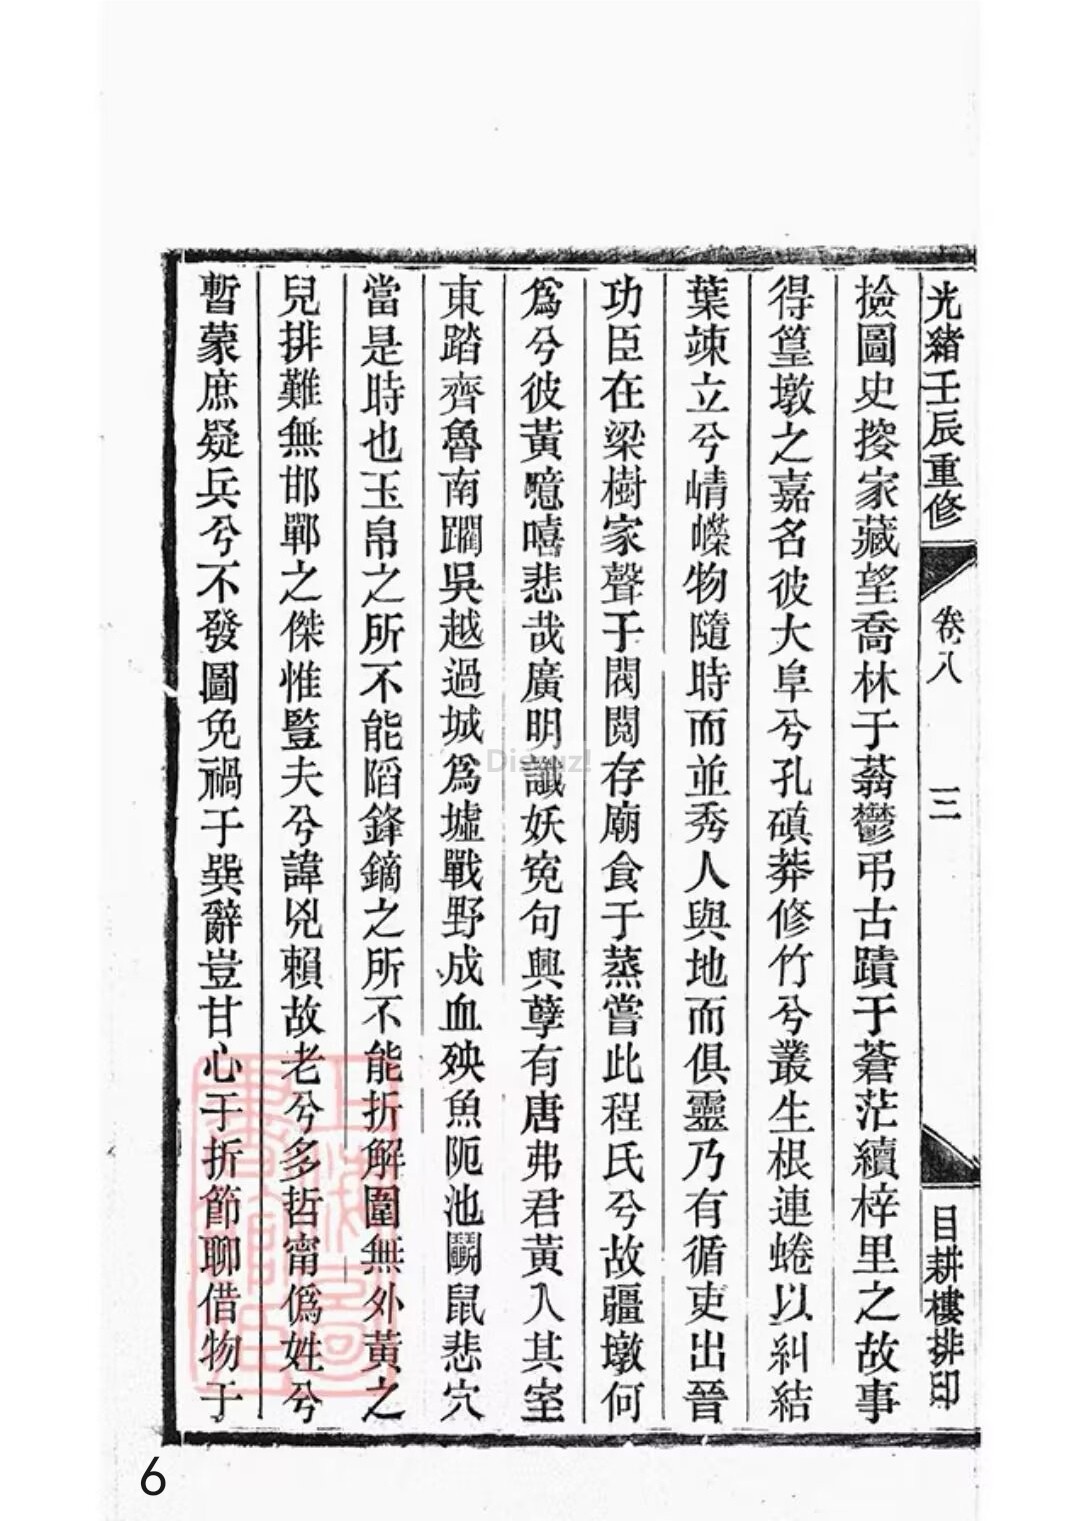 光緒壬辰重修 卷八 三 目耕樓排印
撿圖史按家藏望喬林于蓊鬱弔古蹟于蒼茫續梓里之故事
得篁墩之嘉名彼大阜兮孔磧莽修竹兮叢生根連蜷以糾結
葉竦立兮崝嶸物隨時而並秀人與地而俱靈乃有循吏出晉
功臣在梁樹家聲于閥閱存廟食于蒸嘗此程氏兮故疆墩何
爲兮彼黃噫嘻悲哉廣明讖妖寃句興孽有唐弗君黃入其室
東踏齊魯南躙吳越過城爲墟戰野成血殃魚阨池鬭鼠悲穴
當是時也玉帛之所不能謟鋒鏑之所不能折解圍無外黃之
兒排難無邯鄲之傑惟豎夫兮諱兇賴故老兮多哲甯僞姓兮
暫蒙庶疑兵兮不發圖免禍于巽辭豈甘心于折節聊借物于
上海圖書館
Discuz!
6